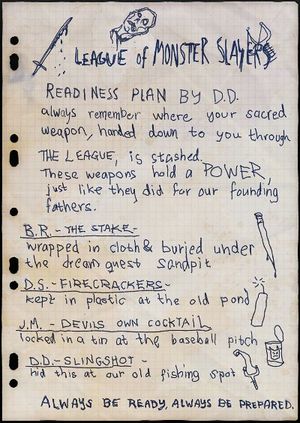 LEAGUE of MONSTER SLAYERS
READINESS PLAN BY D.D.
always remember where your sacred
weapon, handed down to you through
THE LEAGUE, is stashed.
These weapons hold a POWER,
just like they did for our founding
fathers.
B.R. - THE STAKE -
wrapped in cloth & buried under
the dream quest sandpit
D.S. - FIRECRACKERS -
kept in plastic at the old pond
J.M. - DEVILS OWN COCKTAIL
locked in a tin at the baseball pitch
D.D. - SLINGSHOT -
hid this at our old fishing spot
ALWAYS BE READY, ALWAYS BE PREPARED.